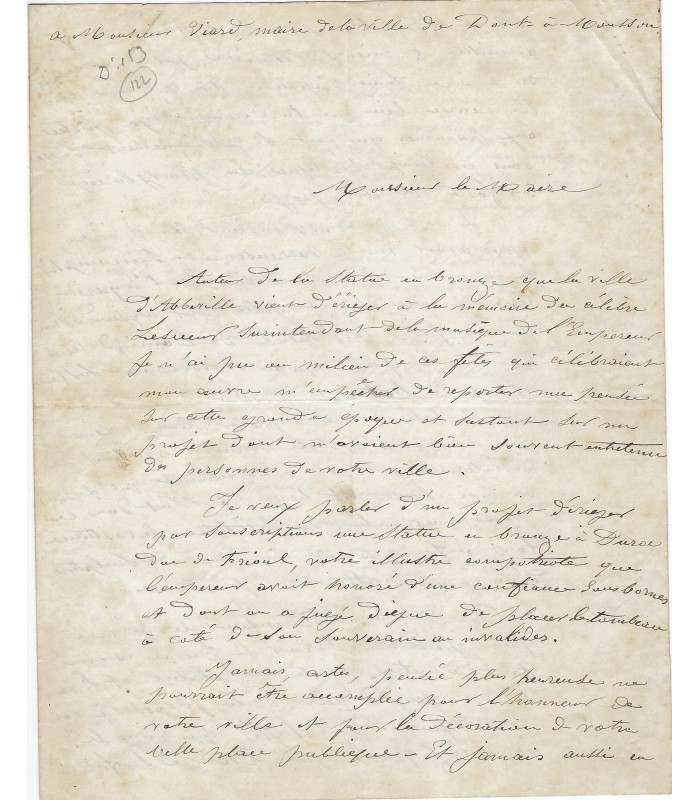 a Monsieur Viard, maire de la ville de Pont-à-Mousson.
122
Monsieur le Maire
Auteur de la statue en bronze que la ville
d'Abbeville vient d'ériger à la mémoire du célèbre
Lesueur Surintendant de la musique de l'Empereur
Je n'ai pu au milieu de ces fêtes qui célébraient
mon œuvre m'empêcher de reporter ma pensée
sur cette grande époque et surtout sur un
projet dont m'avaient bien souvent entretenu
des personnes de votre ville.
Je veux parler d'un projet d'ériger
par souscriptions une statue en bronze à Duroc
duc de Frioul, votre illustre compatriote que
l'empereur avait honoré d'une confiance sans bornes
et dont on a jugé digne de placer le tombeau
à coté de son Souverain au invalides.
Jamais certes, pensée plus heureuse ne
pourrait être accomplie pour l'honneur de
votre ville et pour la décoration de votre
belle place publique – Et jamais aussi en